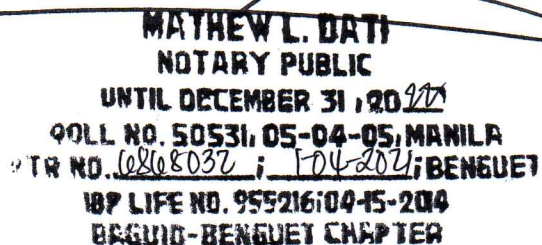 MATHEW L. DATI
NOTARY PUBLIC
UNTIL DECEMBER 31, 20
ROLL NO. 50531; 05-04-05; MANILA
PTR NO. 6868032 ; 1-04-2021; BENGUET
IBP LIFE NO. 955216; 04-15-2014
BAGUIO-BENGUET CHAPTER